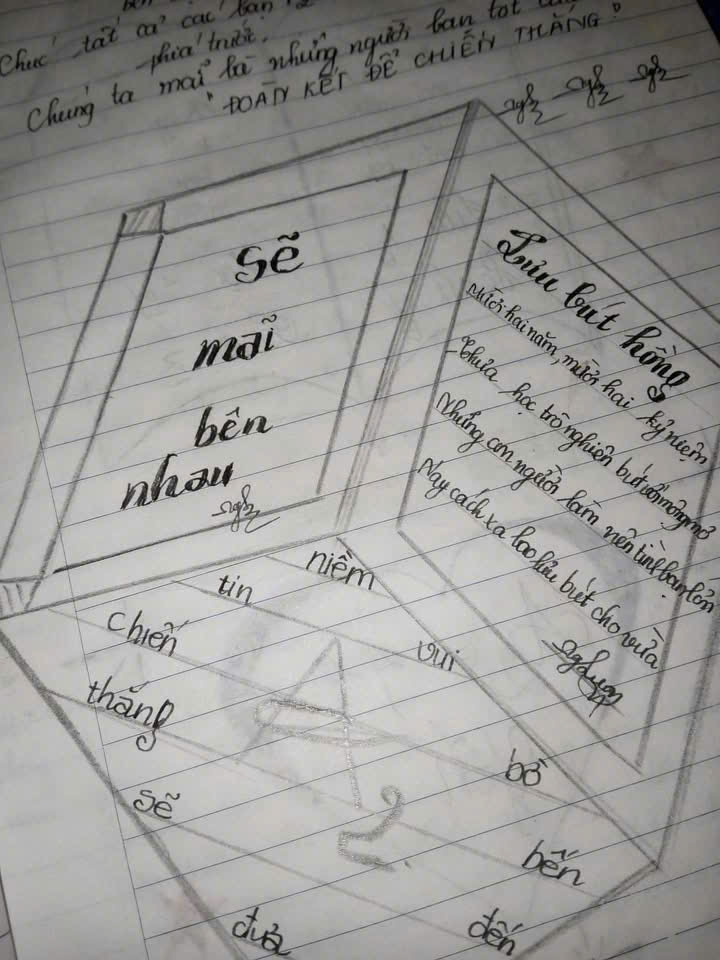 Chúc tất cả các bạn 12
phía trước.
Chúng ta mãi là những người bạn tốt
"ĐOÀN KẾT ĐỂ CHIẾN THẮNG"
Sẽ
mãi
bên
nhau
Lưu bút hồng
Mười hai năm, mười hai kỷ niệm
Thuở học trò nghiên bút với mộng mơ
Những con người làm nên tình bạn lớn
Nay cách xa lao lưu bút cho vừa
niềm
tin
chiến
vui
thắng
bờ
sẽ
bến
đưa
đến
A
2